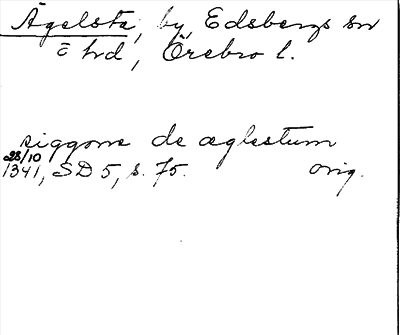 Ägelsta, by, Edsbergs sn
o hd, Örebro l.
siggone de æglestum
28/10
1341, SD 5, s. 75. orig.